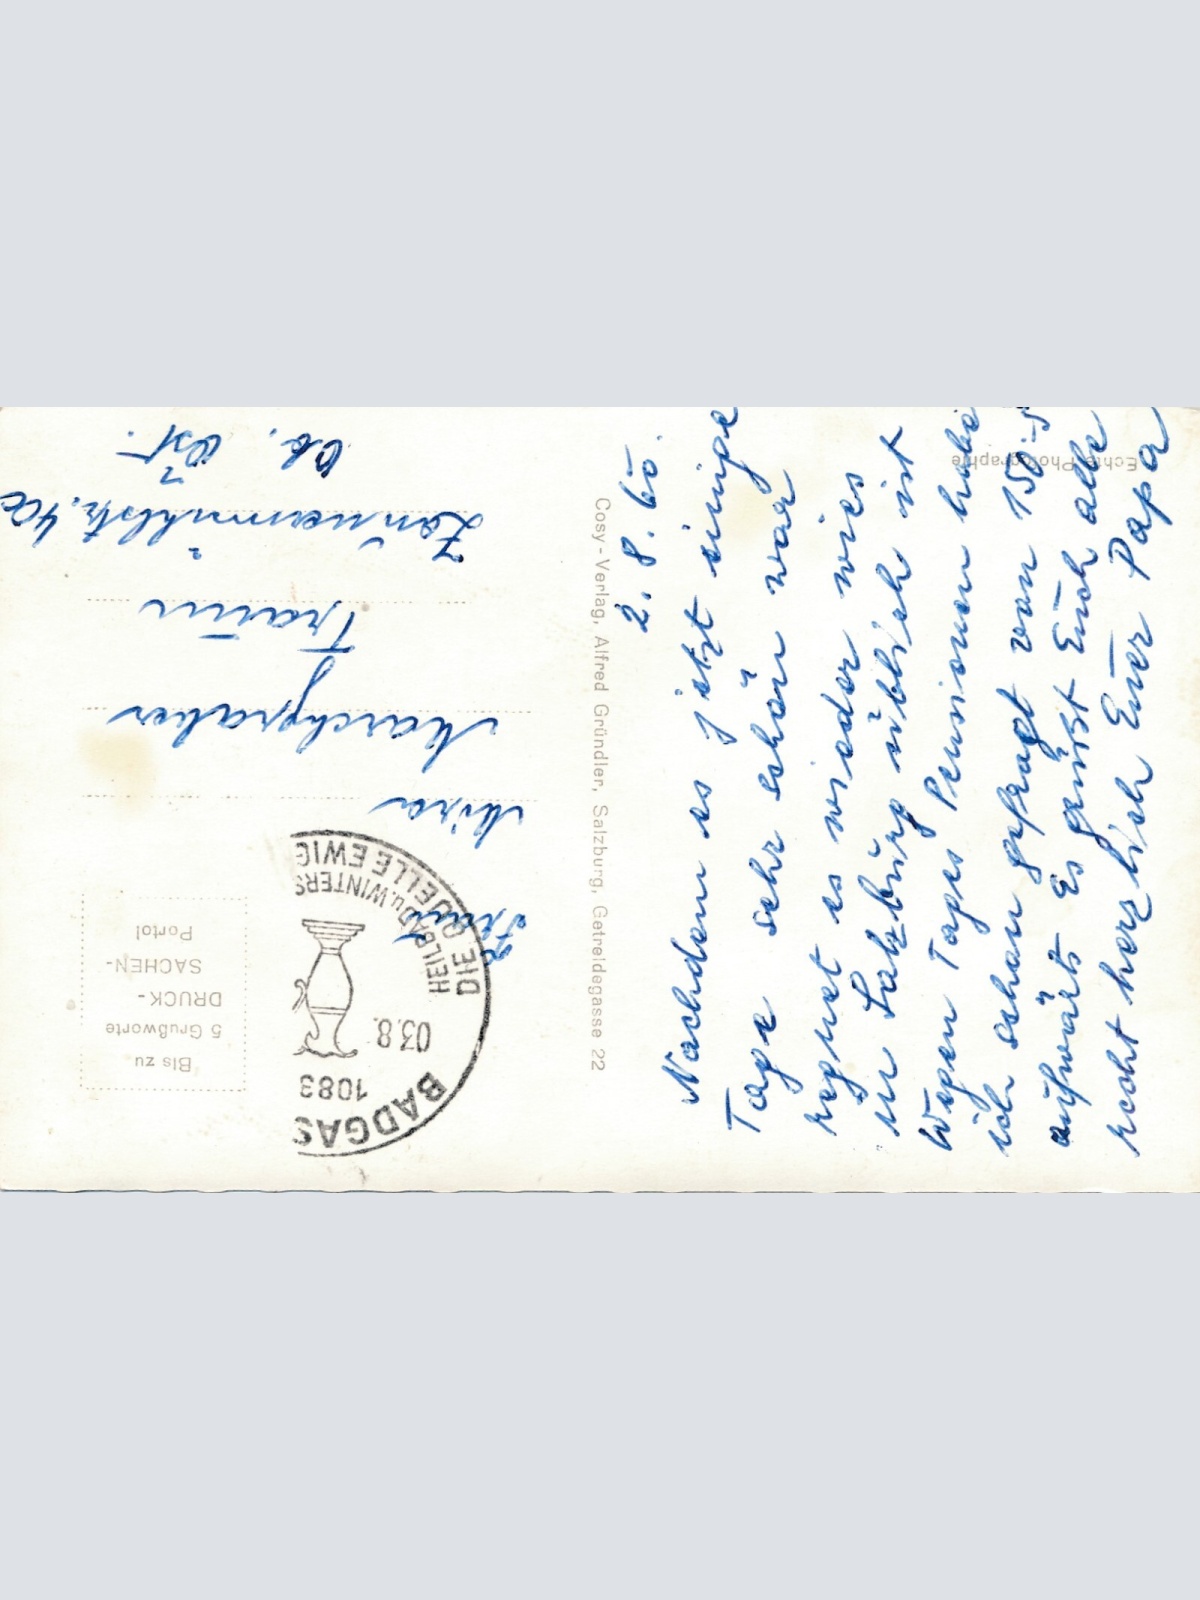 2. 8. 60.
Nachdem es jetzt einige
Tage sehr schön war
regnet es wieder wies
in Salzburg üblich ist
Wegen Tages Pensionen habe
ich schon gefragt von 150.-S
aufwärts Es grüsst Euch alle
recht herzlich Euer Papa
Frau
Mira
Marchgraber
Traun
Ob. Öst.
Cosy-Verlag, Alfred Gründler, Salzburg, Getreidegasse 22
Echte Photographie
Bis zu
5 Grußworte
DRUCK-
SACHEN-
Porto!
BADGAS
1083
03.8.
HEILBAD u. WINTERS
DIE QUELLE EWIG